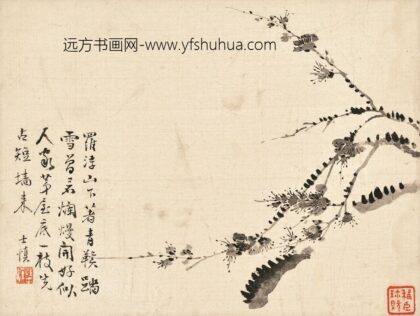 远方书画网-www.yfshuhua.com
羅浮山下著青鞵踏
雪曾看爛熳開好似
人家茅屋底一枝先
占短墻来 士慎